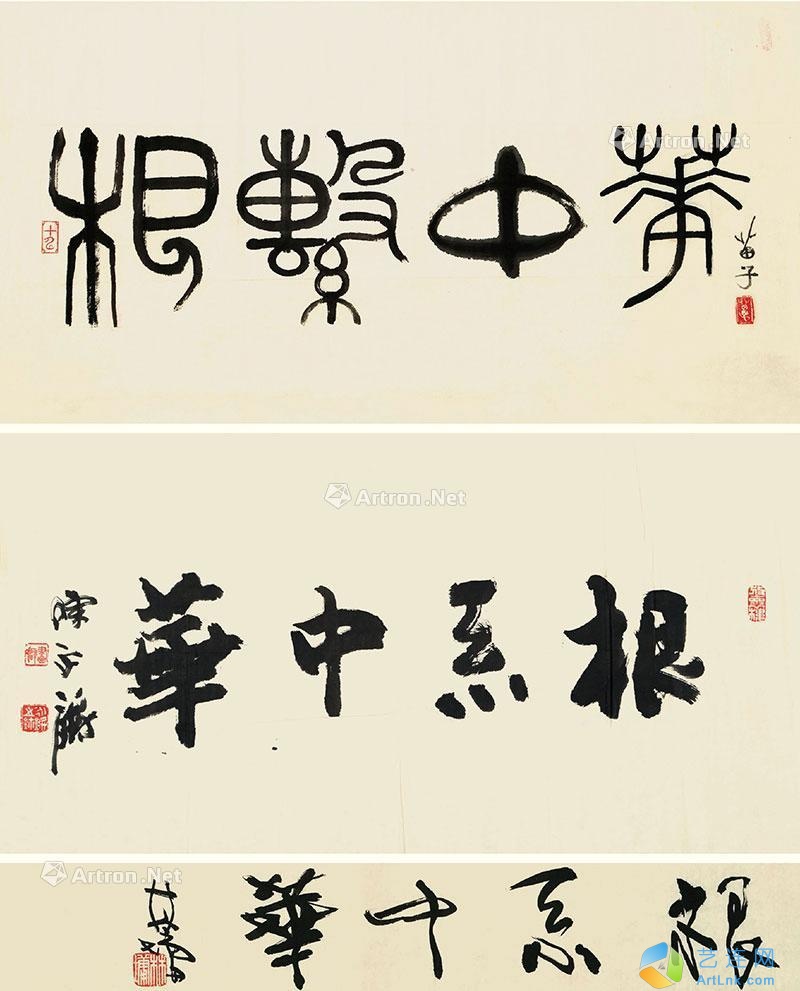 Artron.Net
根繫中華
苗子
Artron.Net
根系中華
Artron.Net
根系中華
艺连网
ArtLnk.com